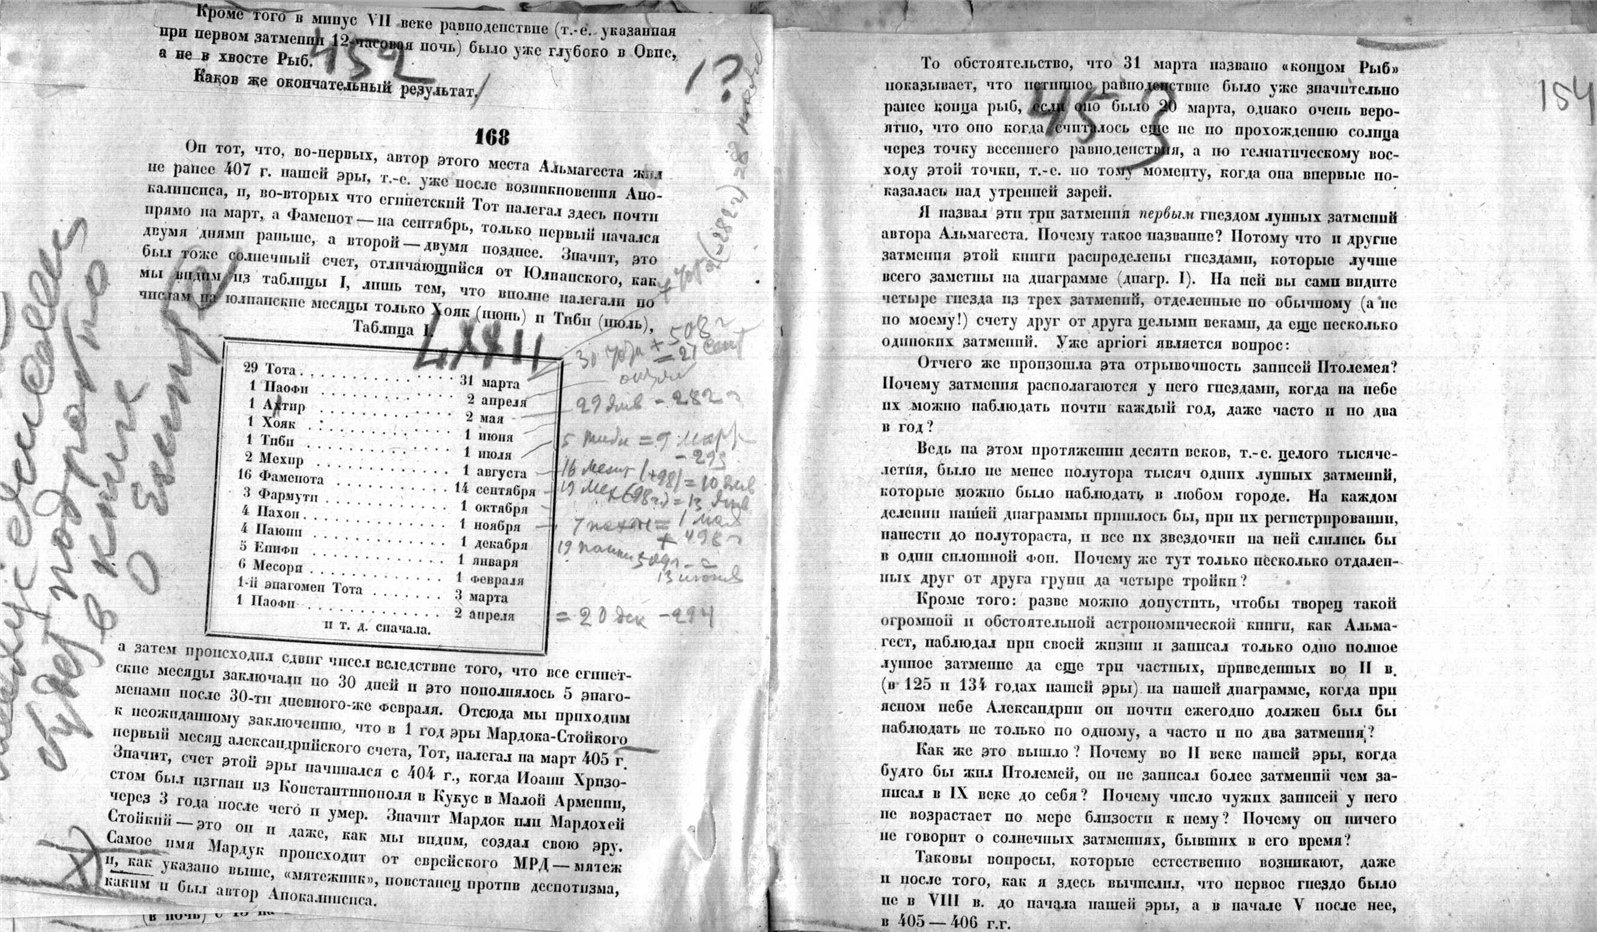 Кроме того в минус VII веке равноденствие (т.-е. указанная
при первом затмении 12-часовая ночь) было уже глубоко в Овне,
а не в хвосте Рыб.
452
Каков же окончательный результат.
!?
168
Он тот, что, во-первых, автор этого места Альмагеста жил
не ранее 407 г. нашей эры, т.-е. уже после возникновения Апо-
калипсиса, и, во-вторых что египетский Тот налегал здесь почти
прямо на март, а Фаменот — на сентябрь, только первый начался
двумя днями раньше, а второй — двумя позднее. Значит, это
был тоже солнечный счет, отличающийся от Юлианского, как
мы видим из таблицы I, лишь тем, что вполне налегали по
числам на юлианские месяцы только Хояк (июнь) и Тиби (июль),
Таблица I.
LXXII
29 Тота . . . . . . . . . . . . 31 марта
1 Паофи . . . . . . . . . . . . 2 апреля
1 Ахтир . . . . . . . . . . . . 2 мая
1 Хояк . . . . . . . . . . . . 1 июня
1 Тиби . . . . . . . . . . . . 1 июля
2 Мехир . . . . . . . . . . . . 1 августа
16 Фаменота . . . . . . . . . . 14 сентября
3 Фармути . . . . . . . . . . . 1 октября
4 Пахон . . . . . . . . . . . . 1 ноября
4 Паюни . . . . . . . . . . . . 1 декабря
5 Епифи . . . . . . . . . . . . 1 января
6 Месори . . . . . . . . . . . 1 февраля
1-й эпагомен Тота . . . . . . . 3 марта
1 Паофи . . . . . . . . . . . . 2 апреля
и т. д. сначала.
= 20 дек - 294
а затем происходил сдвиг чисел вследствие того, что все египет-
ские месяцы заключали по 30 дней и это пополнялось 5 эпаго-
менами после 30-ти дневного-же февраля. Отсюда мы приходим
к неожиданному заключению, что в 1 год эры Мардока-Стойкого
первый месяц александрийского счета, Тот, налегал на март 405 г.
Значит, счет этой эры начинался с 404 г., когда Иоанн Хризо-
стом был изгнан из Константинополя в Кукус в Малой Армении,
через 3 года после чего и умер. Значит Мардок или Мардохей
Стойкий — это он и даже, как мы видим, создал свою эру.
Самое имя Мардук происходит от еврейского МРД — мятеж
и, как указано выше, «мятежник», повстанец против деспотизма,
каким и был автор Апокалипсиса.
будет подробно
в книге
О Египте
154
То обстоятельство, что 31 марта названо «концом Рыб»
показывает, что истинное равноденствие было уже значительно
ранее конца рыб, если оно было 20 марта, однако очень веро-
453
ятно, что оно когда считалось еще не по прохождению солнца
через точку весеннего равноденствия, а по гелиатическому вос-
ходу этой точки, т.-е. по тому моменту, когда она впервые по-
казалась над утренней зарей.
Я назвал эти три затмения первым гнездом лунных затмений
автора Альмагеста. Почему такое название? Потому что и другие
затмения этой книги распределены гнездами, которые лучше
всего заметны на диаграмме (диагр. I). На ней вы сами видите
четыре гнезда из трех затмений, отделенные по обычному (а не
по моему!) счету друг от друга целыми веками, да еще несколько
одиноких затмений. Уже apriori является вопрос:
Отчего же произошла эта отрывочность записей Птолемея?
Почему затмения располагаются у него гнездами, когда на небе
их можно наблюдать почти каждый год, даже часто и по два
в год?
Ведь на этом протяжении десяти веков, т.-е. целого тысяче-
летия, было не менее полутора тысяч одних лунных затмений,
которые можно было наблюдать в любом городе. На каждом
делении нашей диаграммы пришлось бы, при их регистрировании,
нанести до полутораста, и все их звездочки на ней слились бы
в один сплошной фон. Почему же тут только несколько отдален-
ных друг от друга групп да четыре тройки?
Кроме того: разве можно допустить, чтобы творец такой
огромной и обстоятельной астрономической книги, как Альма-
гест, наблюдал при своей жизни и записал только одно полное
лунное затмение да еще три частных, приведенных во II в.
(в 125 и 134 годах нашей эры) на нашей диаграмме, когда при
ясном небе Александрии он почти ежегодно должен был бы
наблюдать не только по одному, а часто и по два затмения?
Как же это вышло? Почему во II веке нашей эры, когда
будто бы жил Птолемей, он не записал более затмений чем за-
писал в IX веке до себя? Почему число чужих записей у него
не возрастает по мере близости к нему? Почему он ничего
не говорит о солнечных затмениях, бывших в его время?
Таковы вопросы, которые естественно возникают, даже
и после того, как я здесь вычислил, что первое гнездо было
не в VIII в. до начала нашей эры, а в начале V после нее,
в 405 — 406 г.г.